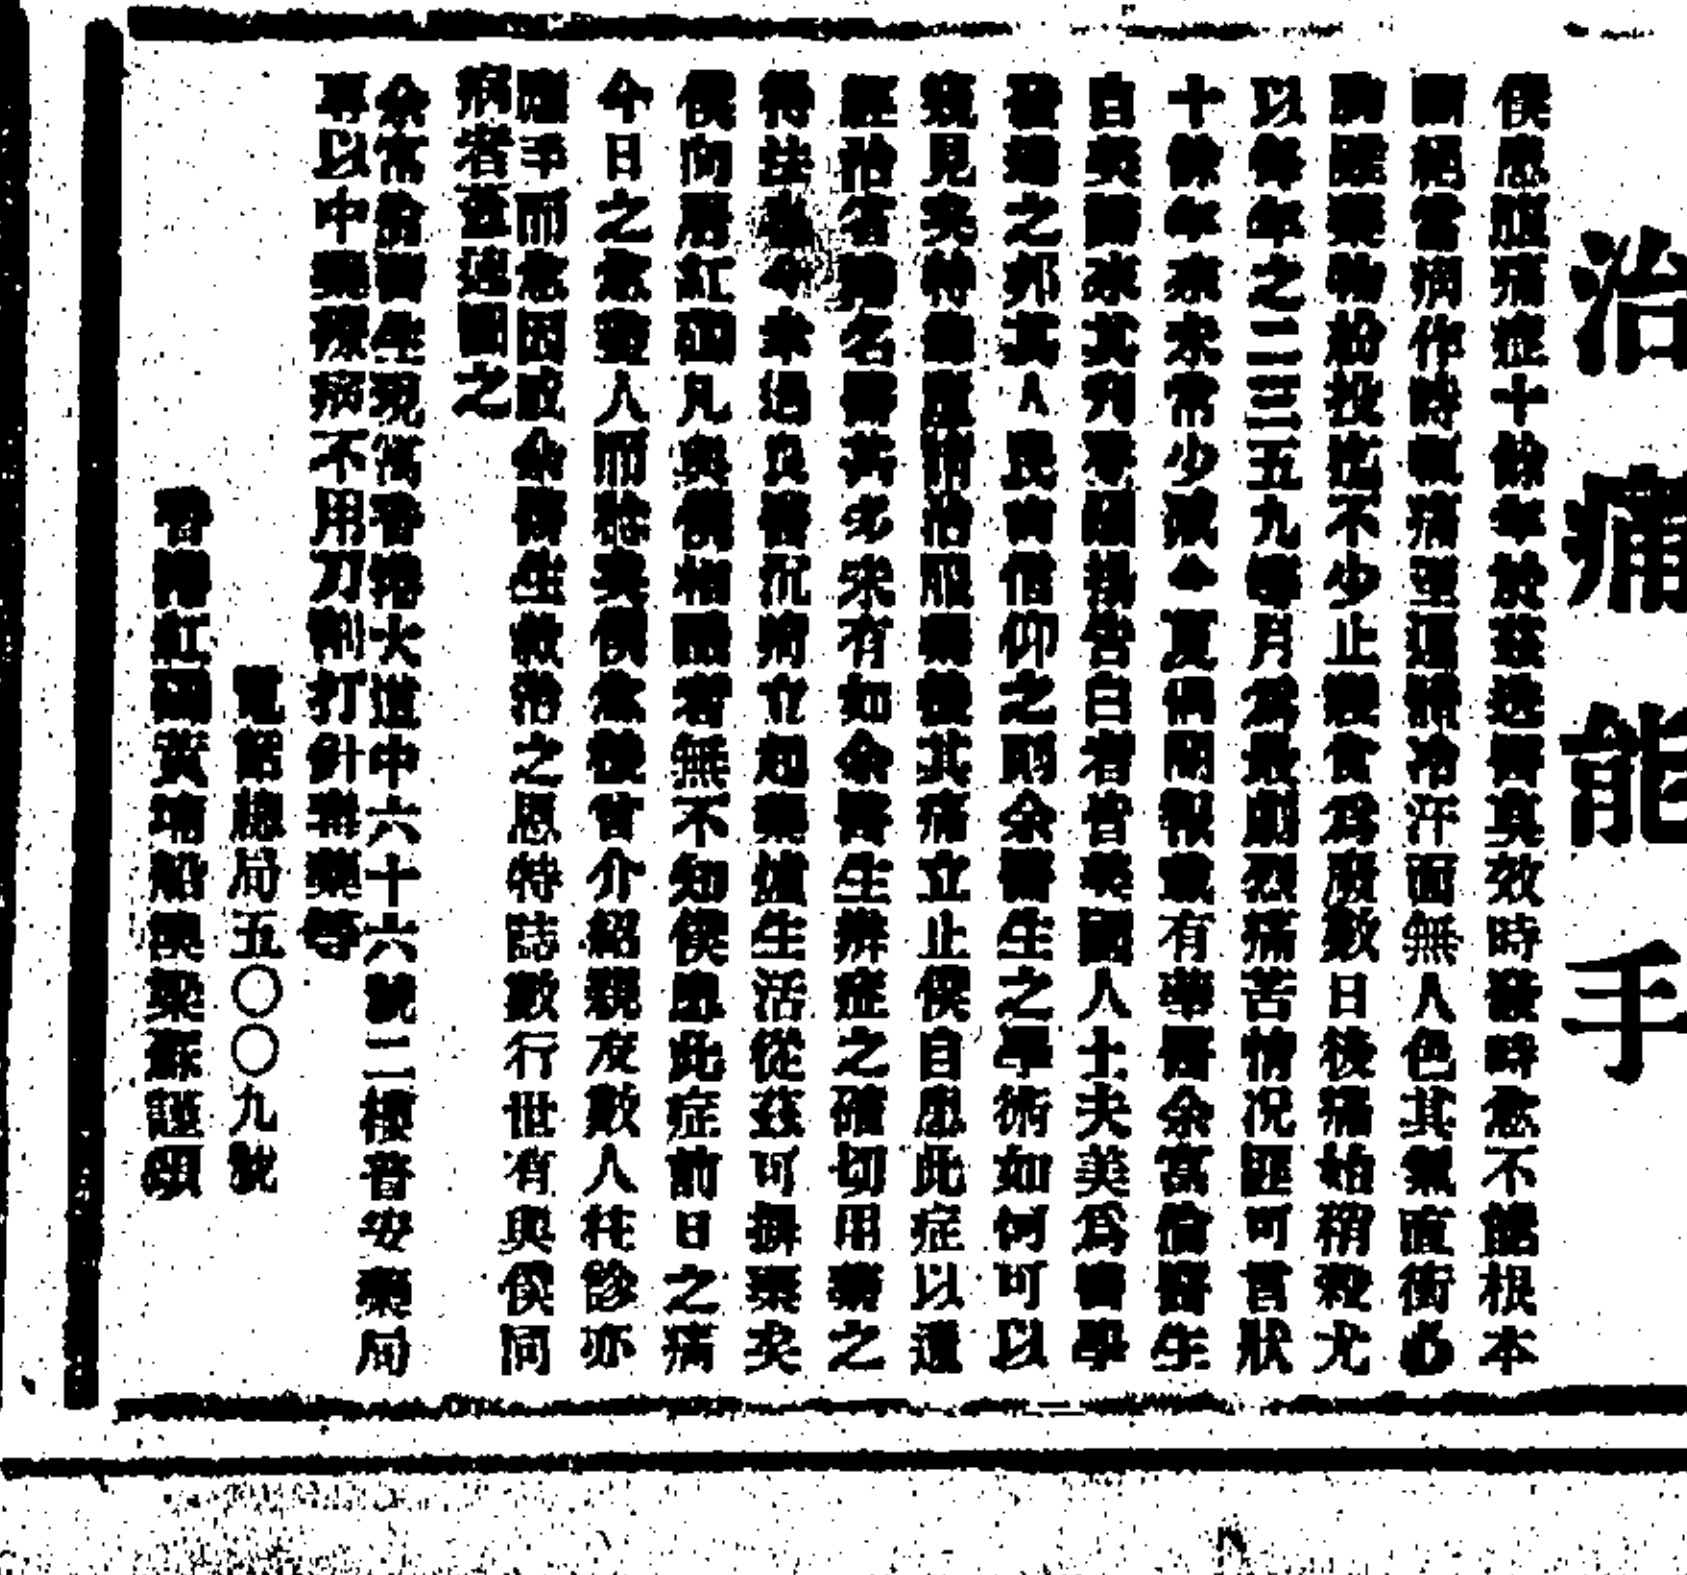 治痛能手
僕患腦痛症十餘年於茲迭醫真效時發時愈不能根本
斷絕當病作時頭痛至遍體冷汗面無人色其氣直衝
胸膛藥物紛投迄不少止寢食為廢數日後痛始稍殺尤
以每年之二三五九等月為最劇烈痛苦情况匪可言狀
十餘年來未常少減今夏偶閱報載有華醫余富倫醫生
自美歸來其列等頌揚告白者皆美國人士夫美為醫學
發達之邦其人民肯信仰之則余醫生之學術如何可以
窺見矣特備應請治服藥後其痛立止僕自患此症以還
經治省港名醫甚多未有如余醫生辨症之確切用藥之
得法者今未過良醫沉疴立起藥爐生活從茲可擯棄矣
僕向居紅磡凡與僕相識者無不知僕患此症前日之痛
今日之愈盡人而悉矣僕愈後曾介紹親友數人往診亦
應手而愈因感余醫生救治之恩特誌數行世有與僕同
病者盍速圖之
余富倫醫生現寓香港大道中六十六號二樓普安藥局
專以中藥療病不用刀割打針毒藥等
電話總局五〇〇九號
香港紅磡黃埔船澳梁蘇謹頌